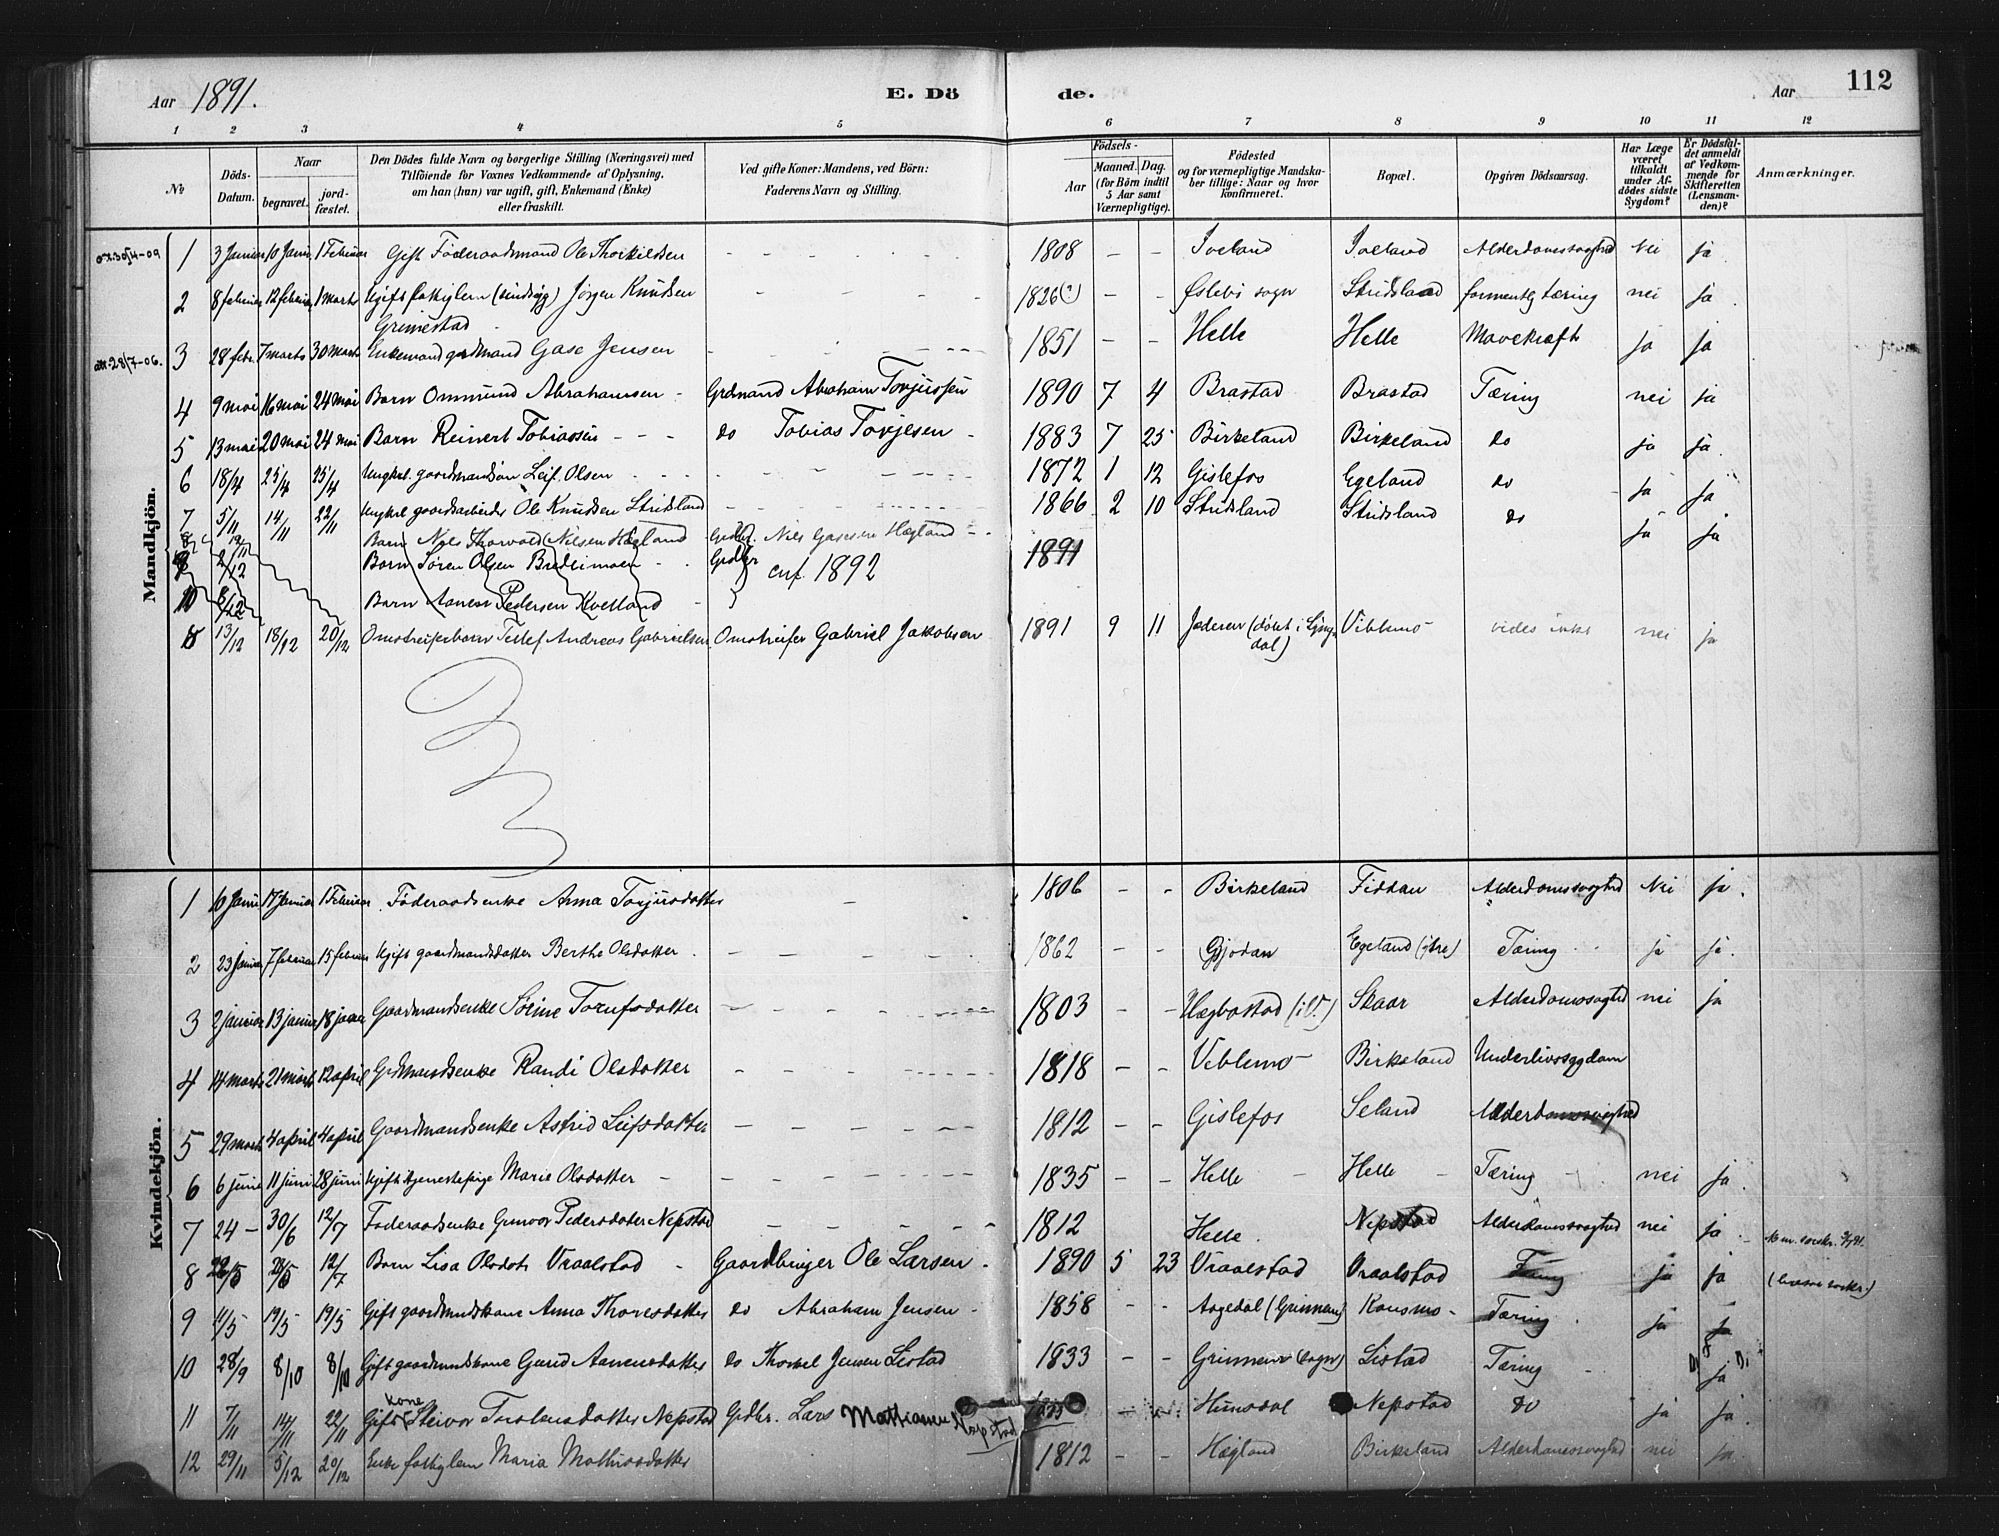 Aar 1891. E. Dö de. Aar 112
1 2 3 4 5 6 7 8 9 10 11 12
No Döds-Datum. Naar begravet. jord-fæstet. Den Dödes fulde Navn og borgerlige Stilling (Næringsvei) med Tilföiende for Voxnes Vedkommende af Oplysning, om han (hun) var ugift, gift, Enkemand (Enke) eller fraskilt. Ved gifte Koner: Mandens, ved Börn: Faderens Navn og Stilling. Födsels- Aar Maaned. Dag. (for Börn indtil 5 Aar samt Værnepligtige). Födested og for værnepligtige Mandska-ber tillige: Naar og hvor konfirmeret. Bopæl. Opgiven Dödsaarsag. Har Læge været tilkaldt under Af-dödes sidste Sygdom? Er Dödsfal-det anmeldt af Vedkom-mende for Skifteretten (Lensman-den)? Anmærkninger.
Mandkjön.
1 3 Januar 10 Janu. 1 Februar Gift Föderaadsmand Ole Thorkildsen - - - 1808 - - Iveland Iveland Alderdomssvaghed Nei ja
2 8 februar 12 februar 1 marts Ugift fattiglem (sindssyg) Jörgen Knudsen - - - 1826(?) - - Öslebö sogn Stridsland formentlig tæring nei ja
Grimestad
3 28 febr. 7 marts 30 marts Enkemand gaardmand Gase Jensen - - - 1851 - - Helle Helle Mavekræft ja ja
4 9 mai 16 mai 24 mai Barn Ommund Abrahamsen - Grdmand Abraham Torjussen 1890 7 4 Brastad Brastad Tæring nei ja
5 13 mai 20 mai 24 mai Barn Reinert Tobiassen - - - do Tobias Torjesen - 1883 7 25 Birkeland Birkeland do ja ja
6 18/4 25/4 25/4 Ungkrl. gaardmandsön Leif Olsen - - - 1872 1 12 Gislefos Egeland do ja ja
7 5/11 14/11 22/11 Ungkrl gaardsarbeider Ole Knudsen Stridsland - - - 1866 2 10 Stridsland Stridsland do ja ja
8 12/11 Barn Nils Thorvald Nilsen Hægland Grdbr. Nils Gasesen Hægland - 1891
9 2/12 Barn Sören Olsen Bredeimoen - Grdbr cnf. 1892
10 8/12 Barn Aanen Pedersen Kvelland -
8 13/12 18/12 20/12 Omstreiferbarn Tellef Andreas Gabrielsen Omstreifer Gabriel Jakobsen 1891 9 11 Jæderen (döbt i Lyng-dal) Viblemo vides ikke nei ja
Kvindekjön.
1 6 Janu 17 Januar 1 Februar Föderaadsenke Anna Torjusdatter - 1806 - - Birkeland Fidjan Alderdomssvaghed Nei ja.
2 23 Januar 7 februar 15 februar Ugift gaardmandsdatter Berthe Olsdatter - - - 1862 - - Gjodan Egeland (ytre) Tæring ja ja.
3 2 januar 13 januar 18 januar Gaardmandsenke Söine Tornfsdatter - - - 1803 - - Hægbostad (i V.) Skaar Alderdomssvaghed nei ja
4 14 marts 21 marts 12 april Grdmandsenke Randi Olsdatter - - - 1818 - - Viblemo Birkeland Underlivssygdom
5 29 marts 4 april 4 april Gaardmandsenke Astrid Leifsdatter - - - 1812 - - Gislefos Seland Alderdomssvaghed
6 6 juni 11 juni 28 juni Ugift tjenestepige Marie Olsdatter - - - 1835 - - Helle - Helle - Tæring nei ja.
7 24 - 30/6 12/7 Föderaadsenke Gunvor Pedersdatter Nepstad - - - 1812 Helle. Nepstad Alderdomssvaghed nei ja.
8 22/5 28/5 12/7 Barn Lisa Olsdatr Vraalstad - Gaardbruger Ole Larsen - 1890 5 23 Vraalstad Vraalstad Tæring ja ja
9 11/5 19/5 19/5 Gift gaardmandskone Anna Thoresdatter do Abraham Jensen - 1858 - - Aagedal (Grinnem) Konsmo - Tæring ja ja
10 28/9 8/10 8/10 Gift gaardmandskone Gurid Aanensdatter do Thorkel Jensen Listad 1833 - - Grinnem (sogn) Listad Tæring ja
11 7/11 14/11 22/11 Gift kone Steivor Torlensdatter Nepstad Grdbr. Lars Mathiassen Nepstad - - Hunsdal Nepstad do ja ja.
12 29/11 5/12 20/12 Enke fattiglem Maria Mathiasdatter 1812 - - Hægland Birkeland Alderdomssvaghed nei ja.